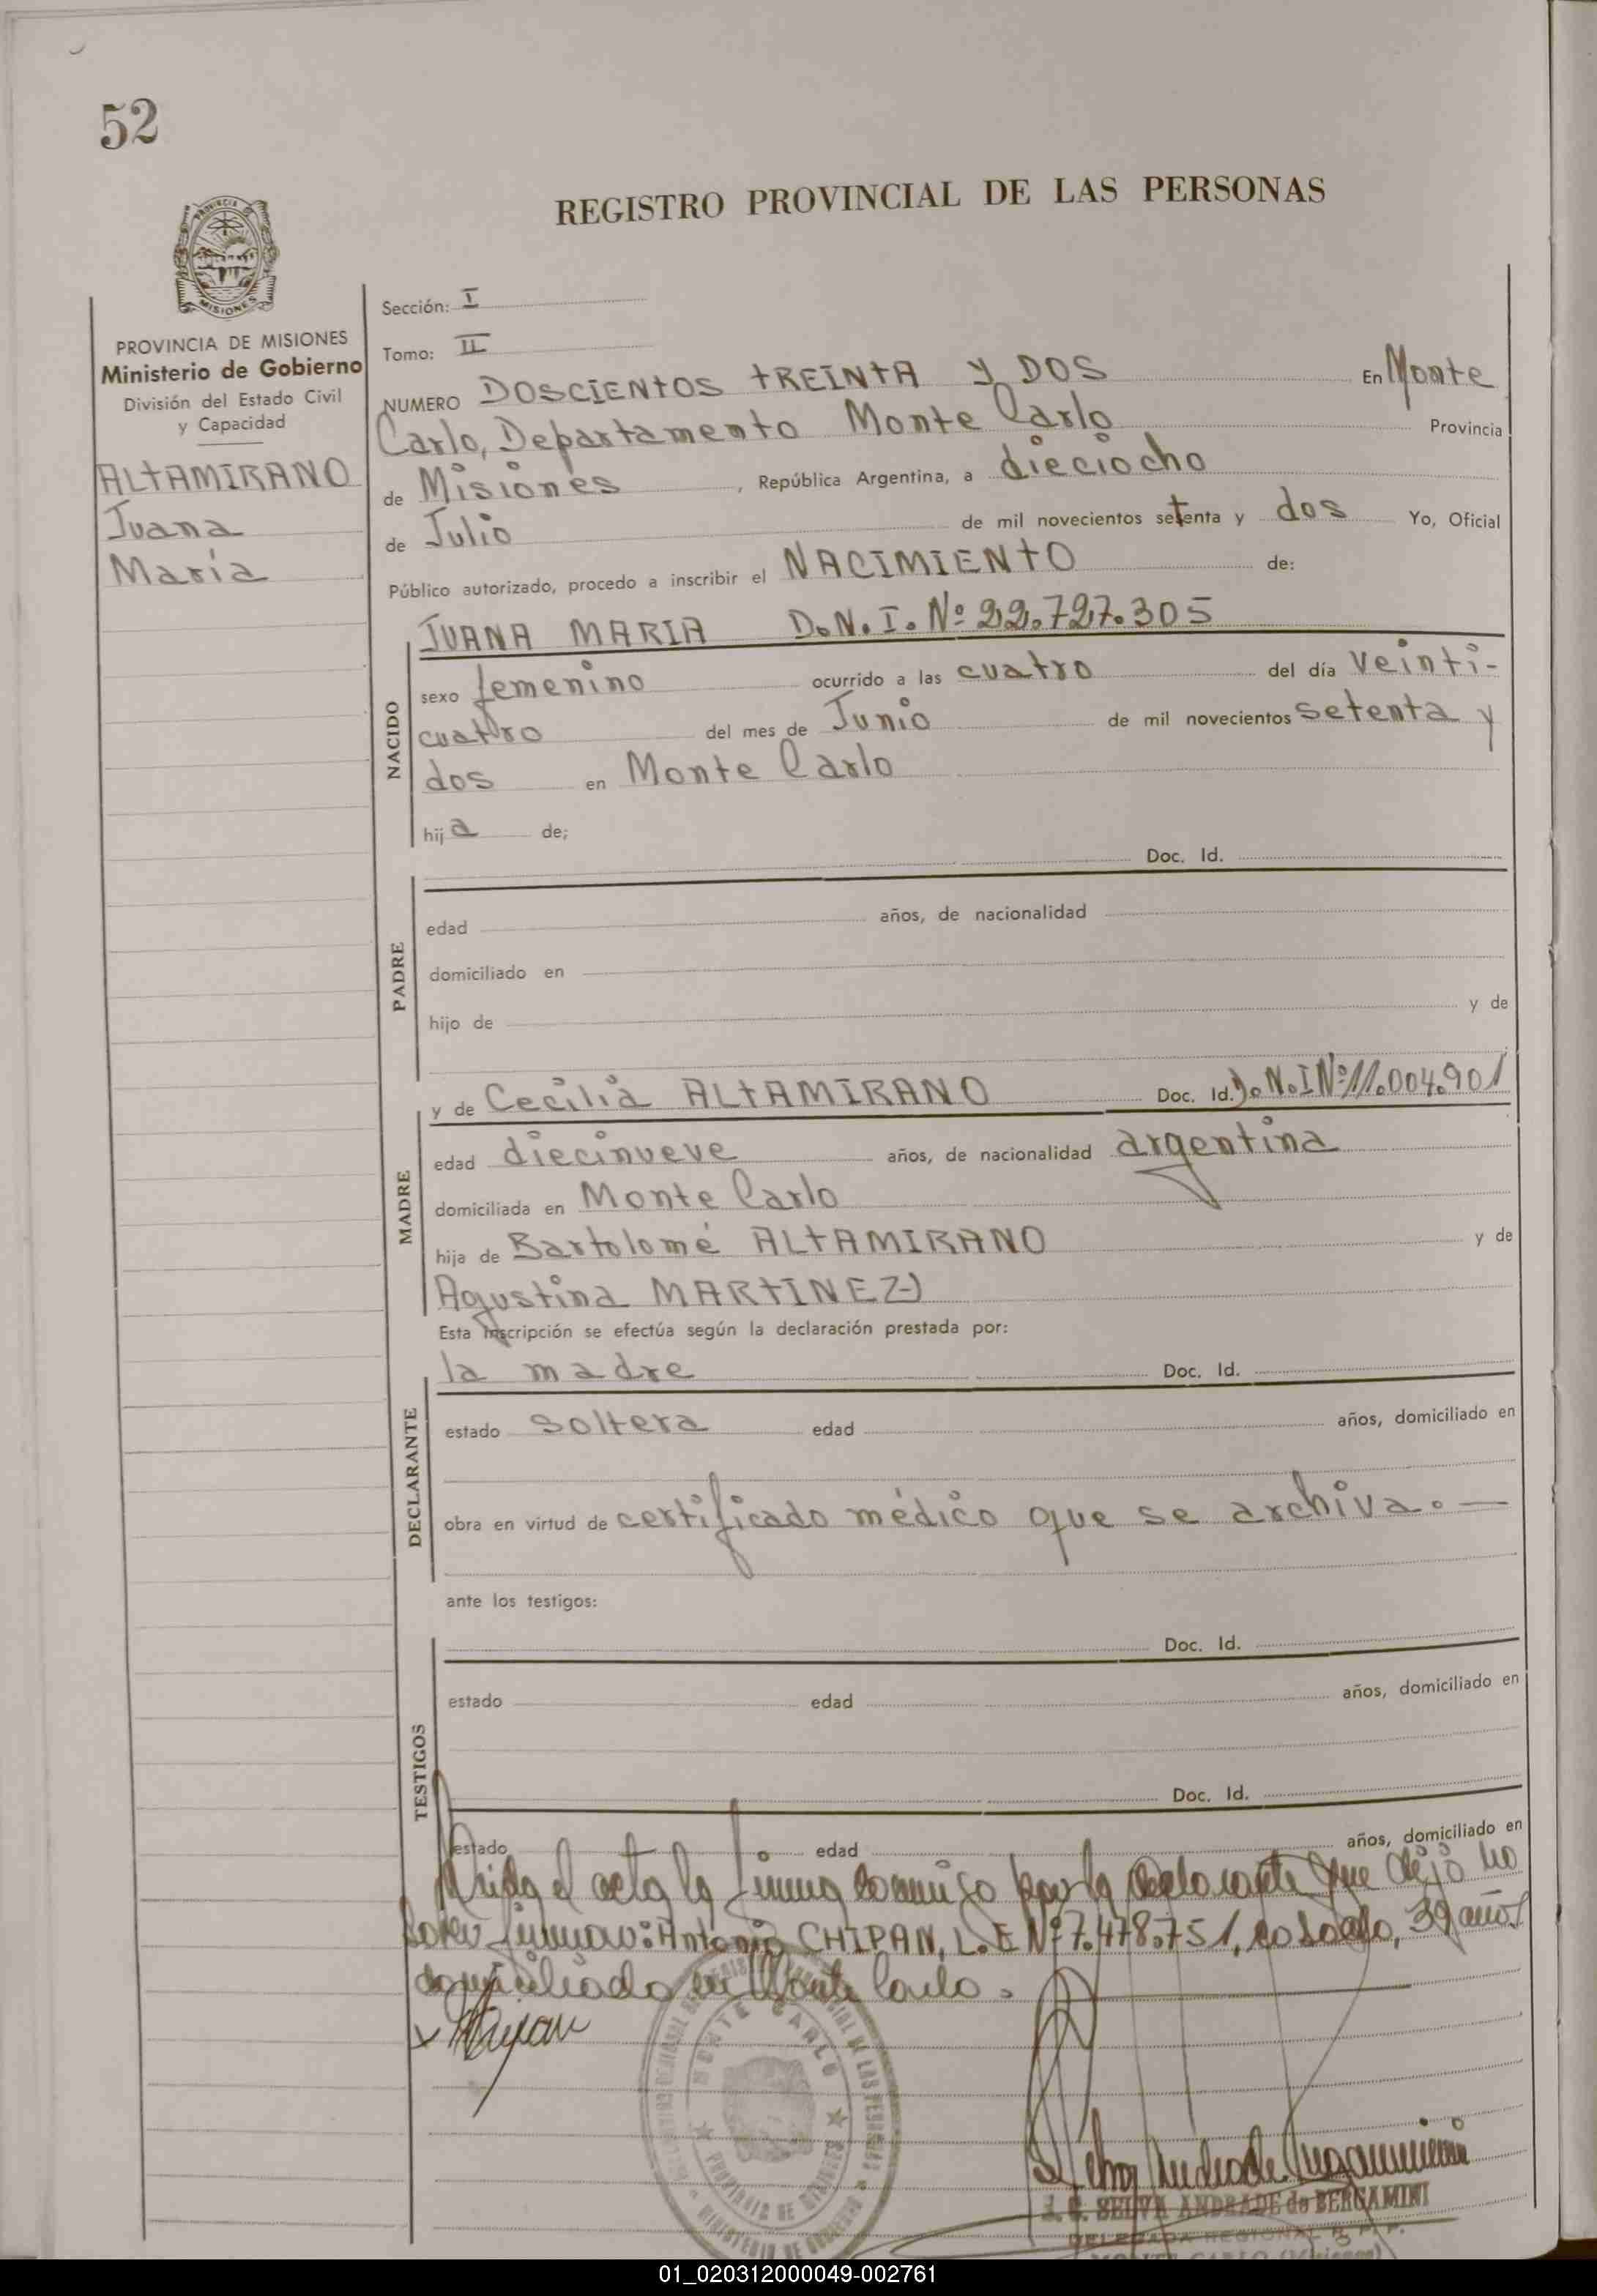 52
REGISTRO PROVINCIAL DE LAS PERSONAS
PROVINCIA DE MISIONES
Ministerio de Gobierno
División del Estado Civil
y Capacidad
ALTAMIRANO
Juana
María
Sección: I
Tomo: II
NUMERO DOSCIENTOS TREINTA Y DOS En Monte
Carlo, Departamento Monte Carlo Provincia
de Misiones, República Argentina, a dieciocho
de Julio de mil novecientos setenta y dos Yo, Oficial
Público autorizado, procedo a inscribir el NACIMIENTO de:
JUANA MARIA D.N.I. Nº 22.727.305
NACIDO
sexo femenino ocurrido a las cuatro del día veinti-
cuatro del mes de Junio de mil novecientos setenta y
dos en Monte Carlo
hija de;
Doc. Id.
PADRE
edad años, de nacionalidad
domiciliado en
hijo de y de
MADRE
y de Cecilia ALTAMIRANO Doc. Id. D.N.I Nº 11.004.901
edad diecinueve años, de nacionalidad argentina
domiciliada en Monte Carlo
hija de Bartolomé ALTAMIRANO y de
Agustina MARTINEZ
Esta inscripción se efectúa según la declaración prestada por:
DECLARANTE
la madre Doc. Id.
estado soltera edad años, domiciliado en
obra en virtud de certificado médico que se archiva.—
ante los testigos:
TESTIGOS
Doc. Id.
estado edad años, domiciliado en
Doc. Id.
estado edad años, domiciliado en
el acta la firma conmigo por la declarante que dijo no
saber firmar: Antonio CHIPAN, L.E Nº 7.478.751, casado, 39 años
domiciliado en Monte Carlo.
MONTE CARLO
PROVINCIA DE MISIONES
MINISTERIO DE GOBIERNO
J. C. SELVA ANDRADE de BERGAMINI
DELEGADA REGIONAL R. P. P.
MONTE CARLO (Misiones)
01_020312000049-002761